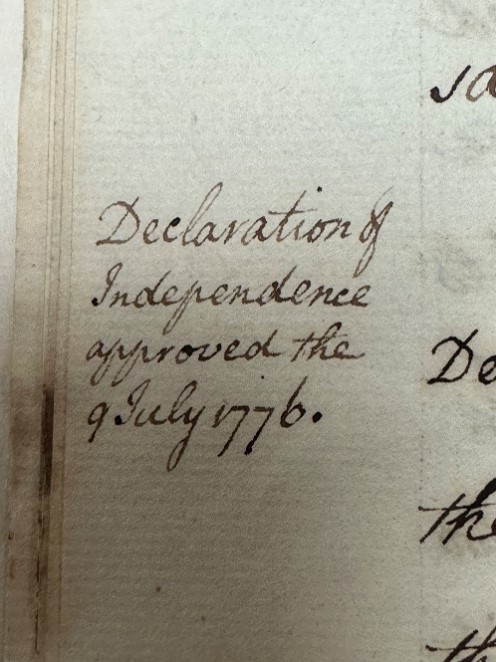 Declaration of
Independence
approved the
9 July 1776.
De
the
th